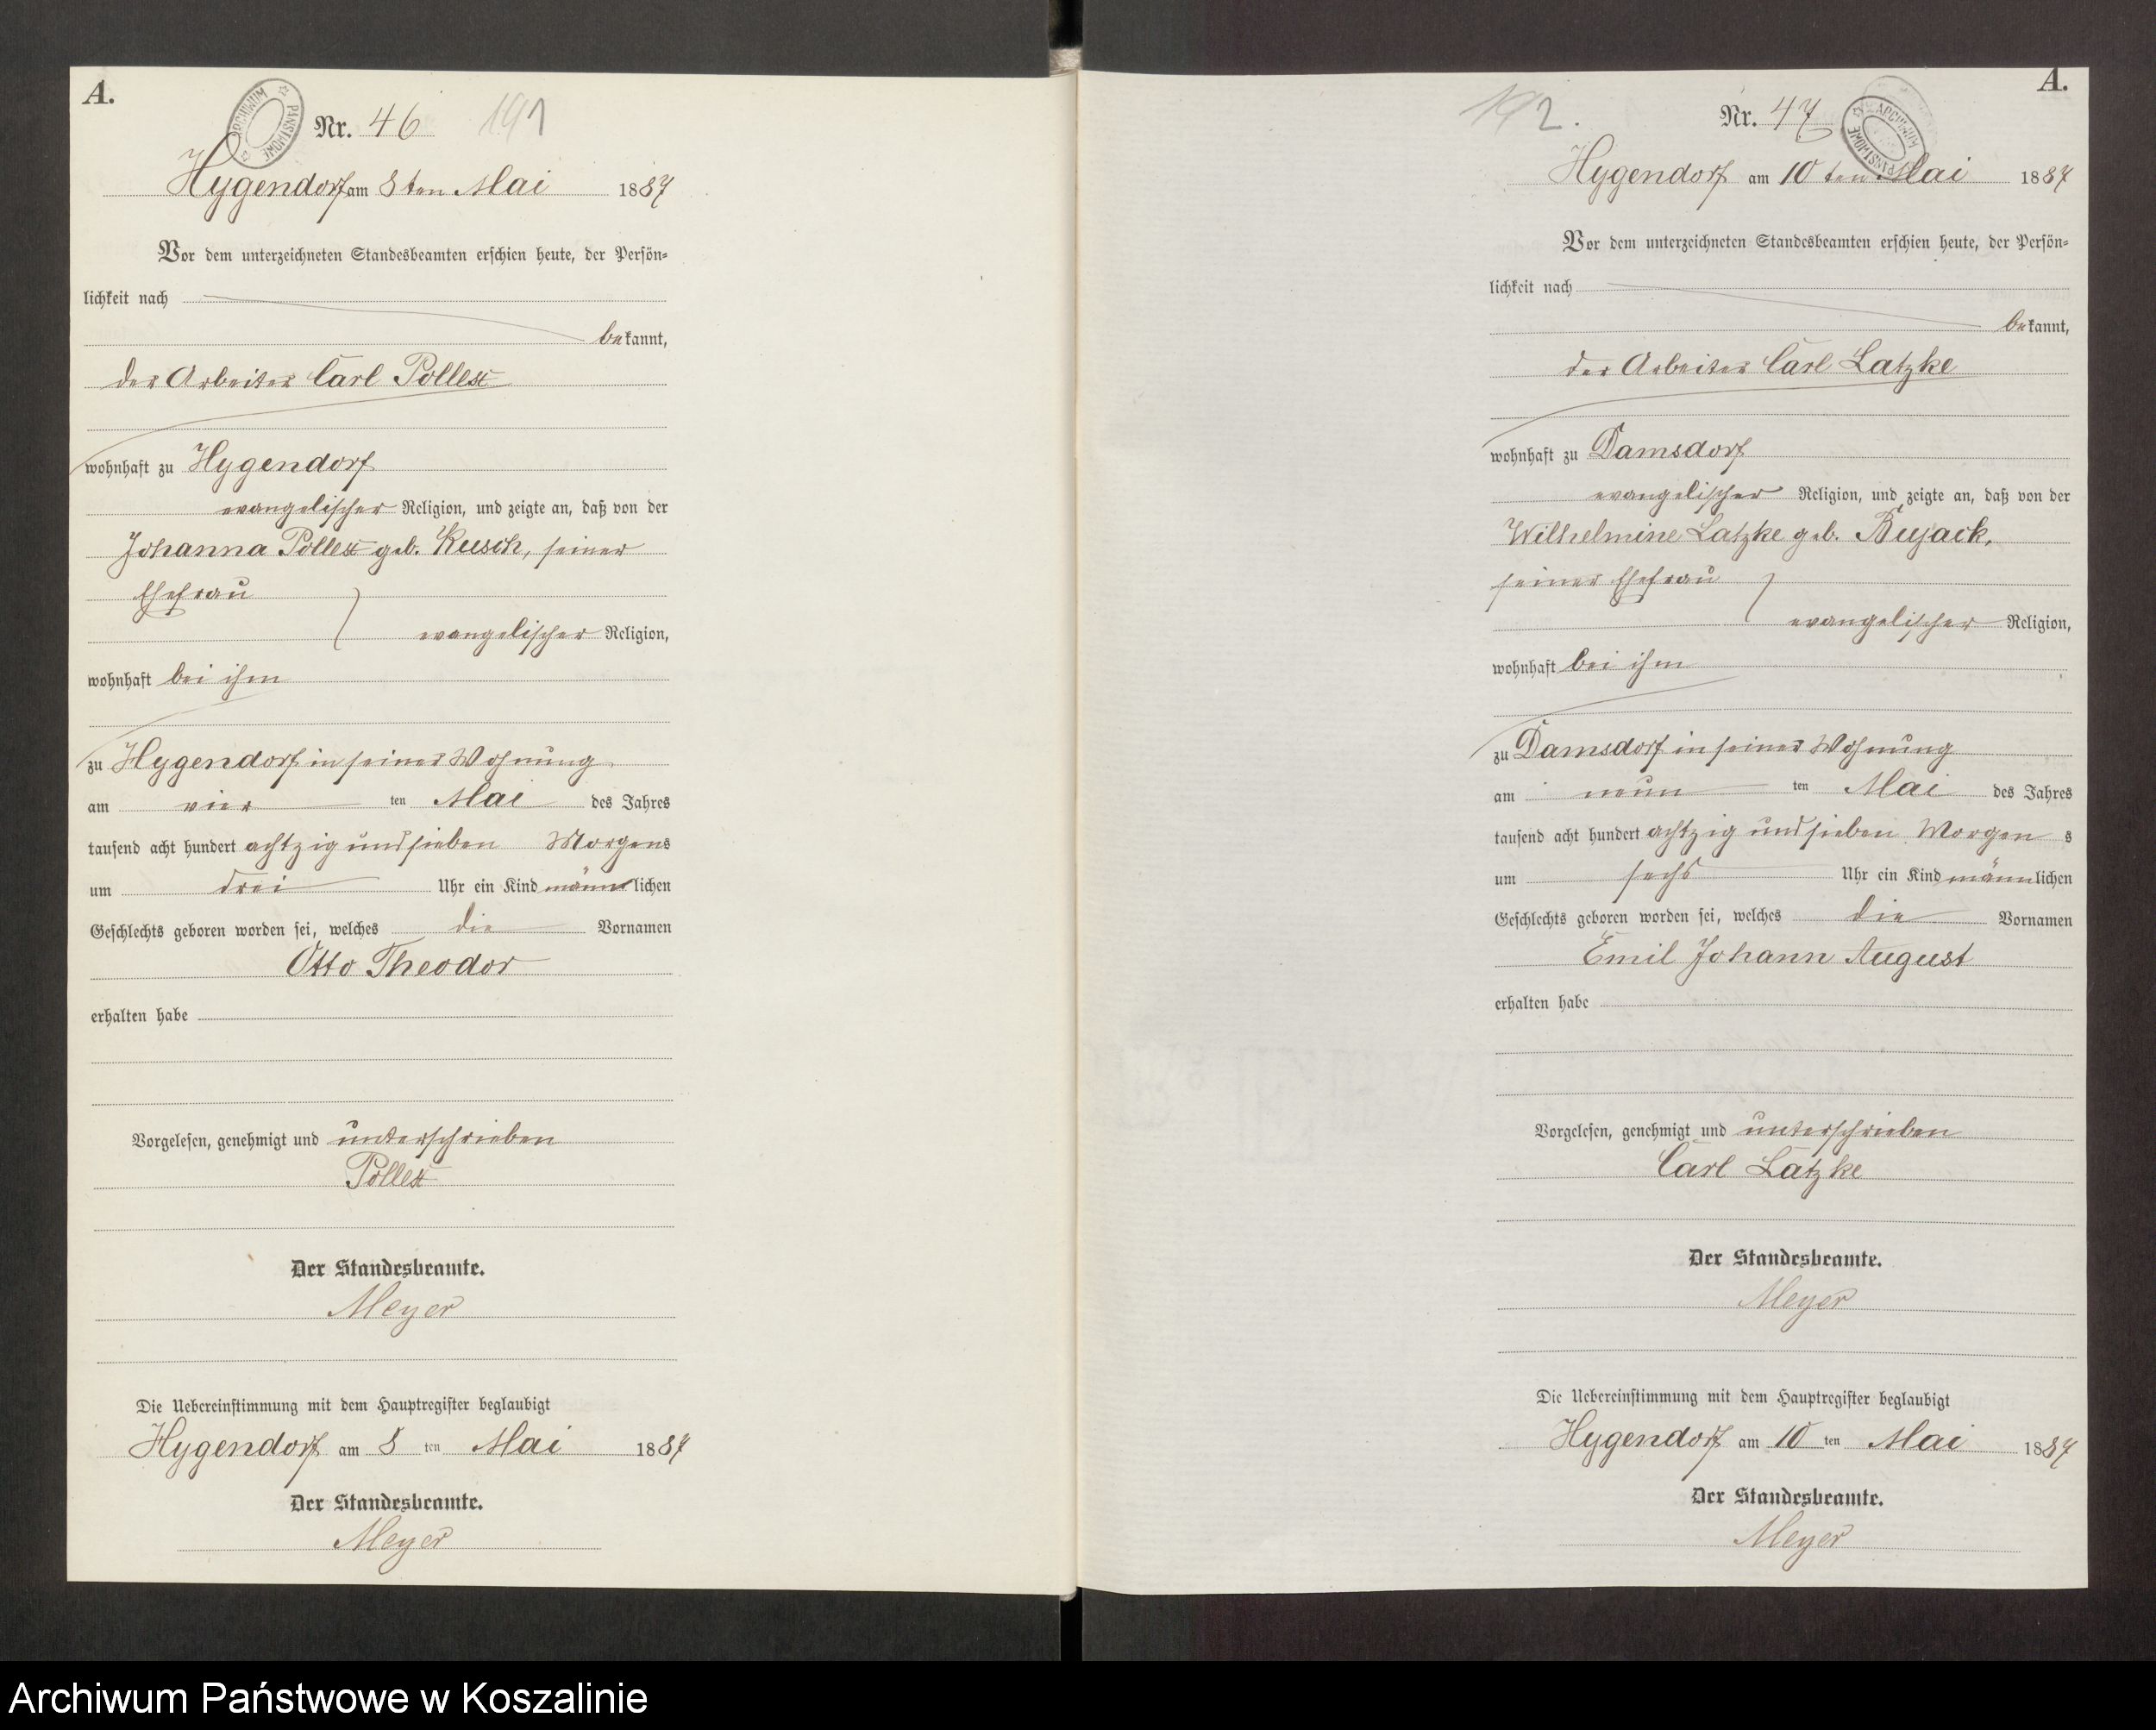 A.
ARCHIWUM PAŃSTWOWE
Nr. 46 191
Hygendorf am 8ten Mai 1887
Vor dem unterzeichneten Standesbeamten erschien heute, der Persön-
lichkeit nach
bekannt,
der Arbeiter Carl Pollex
wohnhaft zu Hygendorf
evangelischer Religion, und zeigte an, daß von der
Johanna Pollex geb. Kusch, seiner
Ehefrau
evangelischer Religion,
wohnhaft bei ihm
zu Hygendorf in seiner Wohnung
am vier ten Mai des Jahres
tausend acht hundert achtzig und sieben Morgens
um drei Uhr ein Kind männlichen
Geschlechts geboren worden sei, welches die Vornamen
Otto Theodor
erhalten habe
Vorgelesen, genehmigt und unterschrieben
Pollex
Der Standesbeamte.
Meyer
Die Uebereinstimmung mit dem Hauptregister beglaubigt
Hygendorf am 8 ten Mai 1887
Der Standesbeamte.
Meyer
A.
192.
Nr. 47
ARCHIWUM PAŃSTWOWE
Hygendorf am 10 ten Mai 1887
Vor dem unterzeichneten Standesbeamten erschien heute, der Persön-
lichkeit nach
bekannt,
der Arbeiter Carl Latzke
wohnhaft zu Damsdorf
evangelischer Religion, und zeigte an, daß von der
Wilhelmine Latzke geb. Bujack,
seiner Ehefrau
evangelischer Religion,
wohnhaft bei ihm
zu Damsdorf in seiner Wohnung
am neun ten Mai des Jahres
tausend acht hundert achtzig und sieben Morgens
um sechs Uhr ein Kind männlichen
Geschlechts geboren worden sei, welches die Vornamen
Emil Johann August
erhalten habe
Vorgelesen, genehmigt und unterschrieben
Carl Latzke
Der Standesbeamte.
Meyer
Die Uebereinstimmung mit dem Hauptregister beglaubigt
Hygendorf am 10 ten Mai 1887
Der Standesbeamte.
Meyer
Archiwum Państwowe w Koszalinie